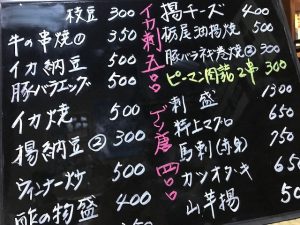 枝豆 300
牛の串焼① 350
イカ納豆 500
豚バラエッグ 500
イカ焼 500
揚納豆② 300
ウィンナー炒 500
酢の物盛 400
イカ刺 五〇〇
揚チーズ 400
栃尾油揚焼 500
豚バラネギ巻焼② 300
ピーマン肉詰2串 300
刺盛 1300
特上マグロ 650
馬刺(赤身) 750
カツオタタキ 650
山芋揚 500